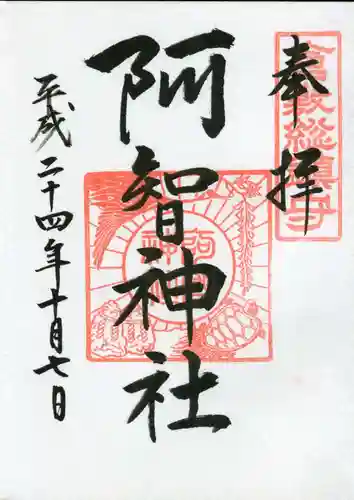 奉拝
倉敷総鎮守
阿智神社
平成二十四年十月七日